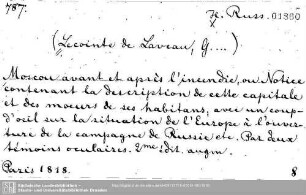 787.
H. Russ. 01360
X
(Lecointe de Laveau, G....)
Moscou avant et après l'incendie, ou Notice
contenant la description de cette capitale
et des moeurs de ses habitans, avec un coup-
d'oeil sur la situation de l'Europe à l'ouver-
ture de la campagne de Russie etc. Par deux
témoins oculaires. 2me édit. augm
Paris 1818. 8